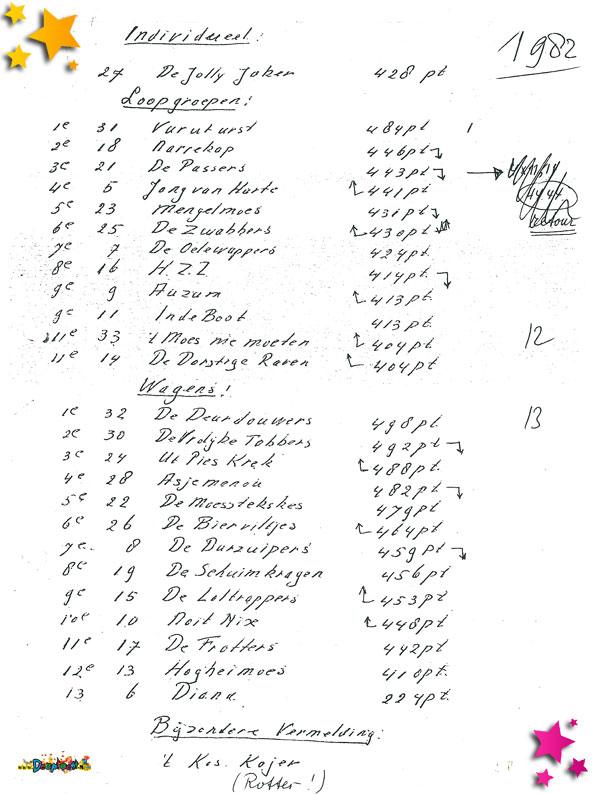 Individueel:
1982
27 De Jolly Joker 428 pt
Loopgroepen:
1e 31 Vuruturst 484pt 1
2e 18 Narrekop 446pt
3e 21 De Passers 443pt
4e 5 Jong van Harte 441pt
5e 23 Mengelmoes 431pt
retour
6e 25 De Zwabbers 430pt
7e 7 De Oelewappers 424pt
8e 16 H.Z.Z 414pt
9e 9 Auzum 413pt.
9e 11 In de Boot 413pt.
11e 33 't Moes nie moeten 404pt 12
11e 14 De Dorstige Raven 404pt
Wagens:
1e 32 De Deurdouwers 498pt. 13
2e 30 De Vrolijke Tobbers 492pt
3e 24 Ut Pies Krek 488pt.
4e 28 Asjemenou 482pt
5e 22 De Moesstekskes 479pt.
6e 26 De Bierviltjes 464pt.
7e. 8 De Durzuipers 459pt
8e 19 De Schuimkragen 456pt
9e 15 De Loltrappers 453pt.
10e 10 Noit Nix 448pt.
11e 17 De Frotters 442pt
12e 13 Hogheimoes 410pt.
13 6 Diana 224pt.
Bijzondere Vermelding:
't Kos. Kojer
(Rotter!)